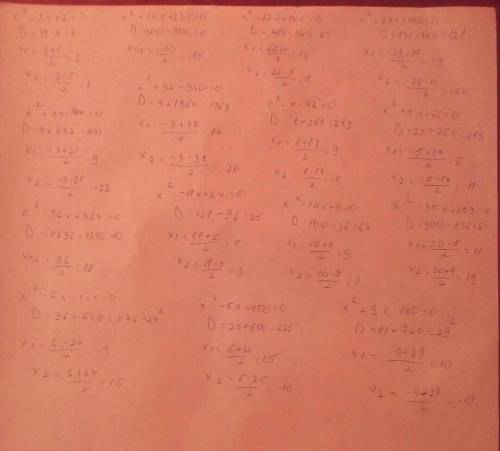 x² - 3x + 2 = 0
D = 9 - 8 = 1
x1 = 3+1/2 = 2
x2 = 3-1/2 = 1
x² + 30x + 225 = 0
D = 900 - 900 = 0
x1,2 = -30/2 = -15
D = 484 - 420 = 64
x1 = 22+8/2 = 15
x2 = 22-8/2
x1 = -29+11/2 = -9
x2 = -29-11/2 = -20
D = 9 + 432 = 441
x1 = -3+21/2 = 9
x2 = -3-21/2 = -12
D = 9 + 1360 = 1369
x1 = -3+37/2 = 17
x2 = -3-37/2 = -20
x² - x - 72 = 0
D = 1 + 288 = 289
x1 = 1+17/2 = 9
x2 = 1-17/2 = -8
x² + 5x - 66 = 0
D = 25 + 264 = 289
x1 = -5+17/2 = 6
x2 = -5-17/2 = -11
x² - 36x + 324 = 0
D = 1296 - 1296 = 0
x1,2 = 36/2 = 18
x² - 11x + 24 = 0
D = 121 - 96 = 25
x1 = 11+5/2 = 8
x2 = 11-5/2 = 3
x² - 10x + 9 = 0
D = 100 - 36 = 64
x1 = 10+8/2 = 9
x2 = 10-8/2 = 1
x² - 30x + 209 = 0
D = 900 - 836 = 64
x1 = 30-8/2 = 11
x2 = 30+8/2 = 19
x² - 6x - 135 = 0
D = 36 + 540 = 576 = 24²
x1 = 6-24/2 = -9
x2 = 6+24/2 = 15
x² - 5x - 150 = 0
D = 25 + 600 = 625
x1 = 5+25/2 = 15
x2 = 5-25/2 = -10
x² + 9x - 190 = 0
D = 81 + 760 = 29²
x1 = -9+29/2 = 10
x2 = -9-29/2 = -19